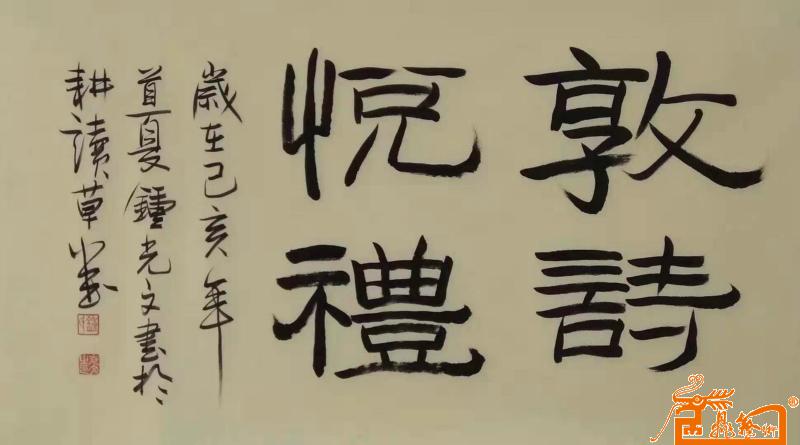 敦詩
悦禮
歲在己亥年
首夏鍾光文書於
耕讀草堂